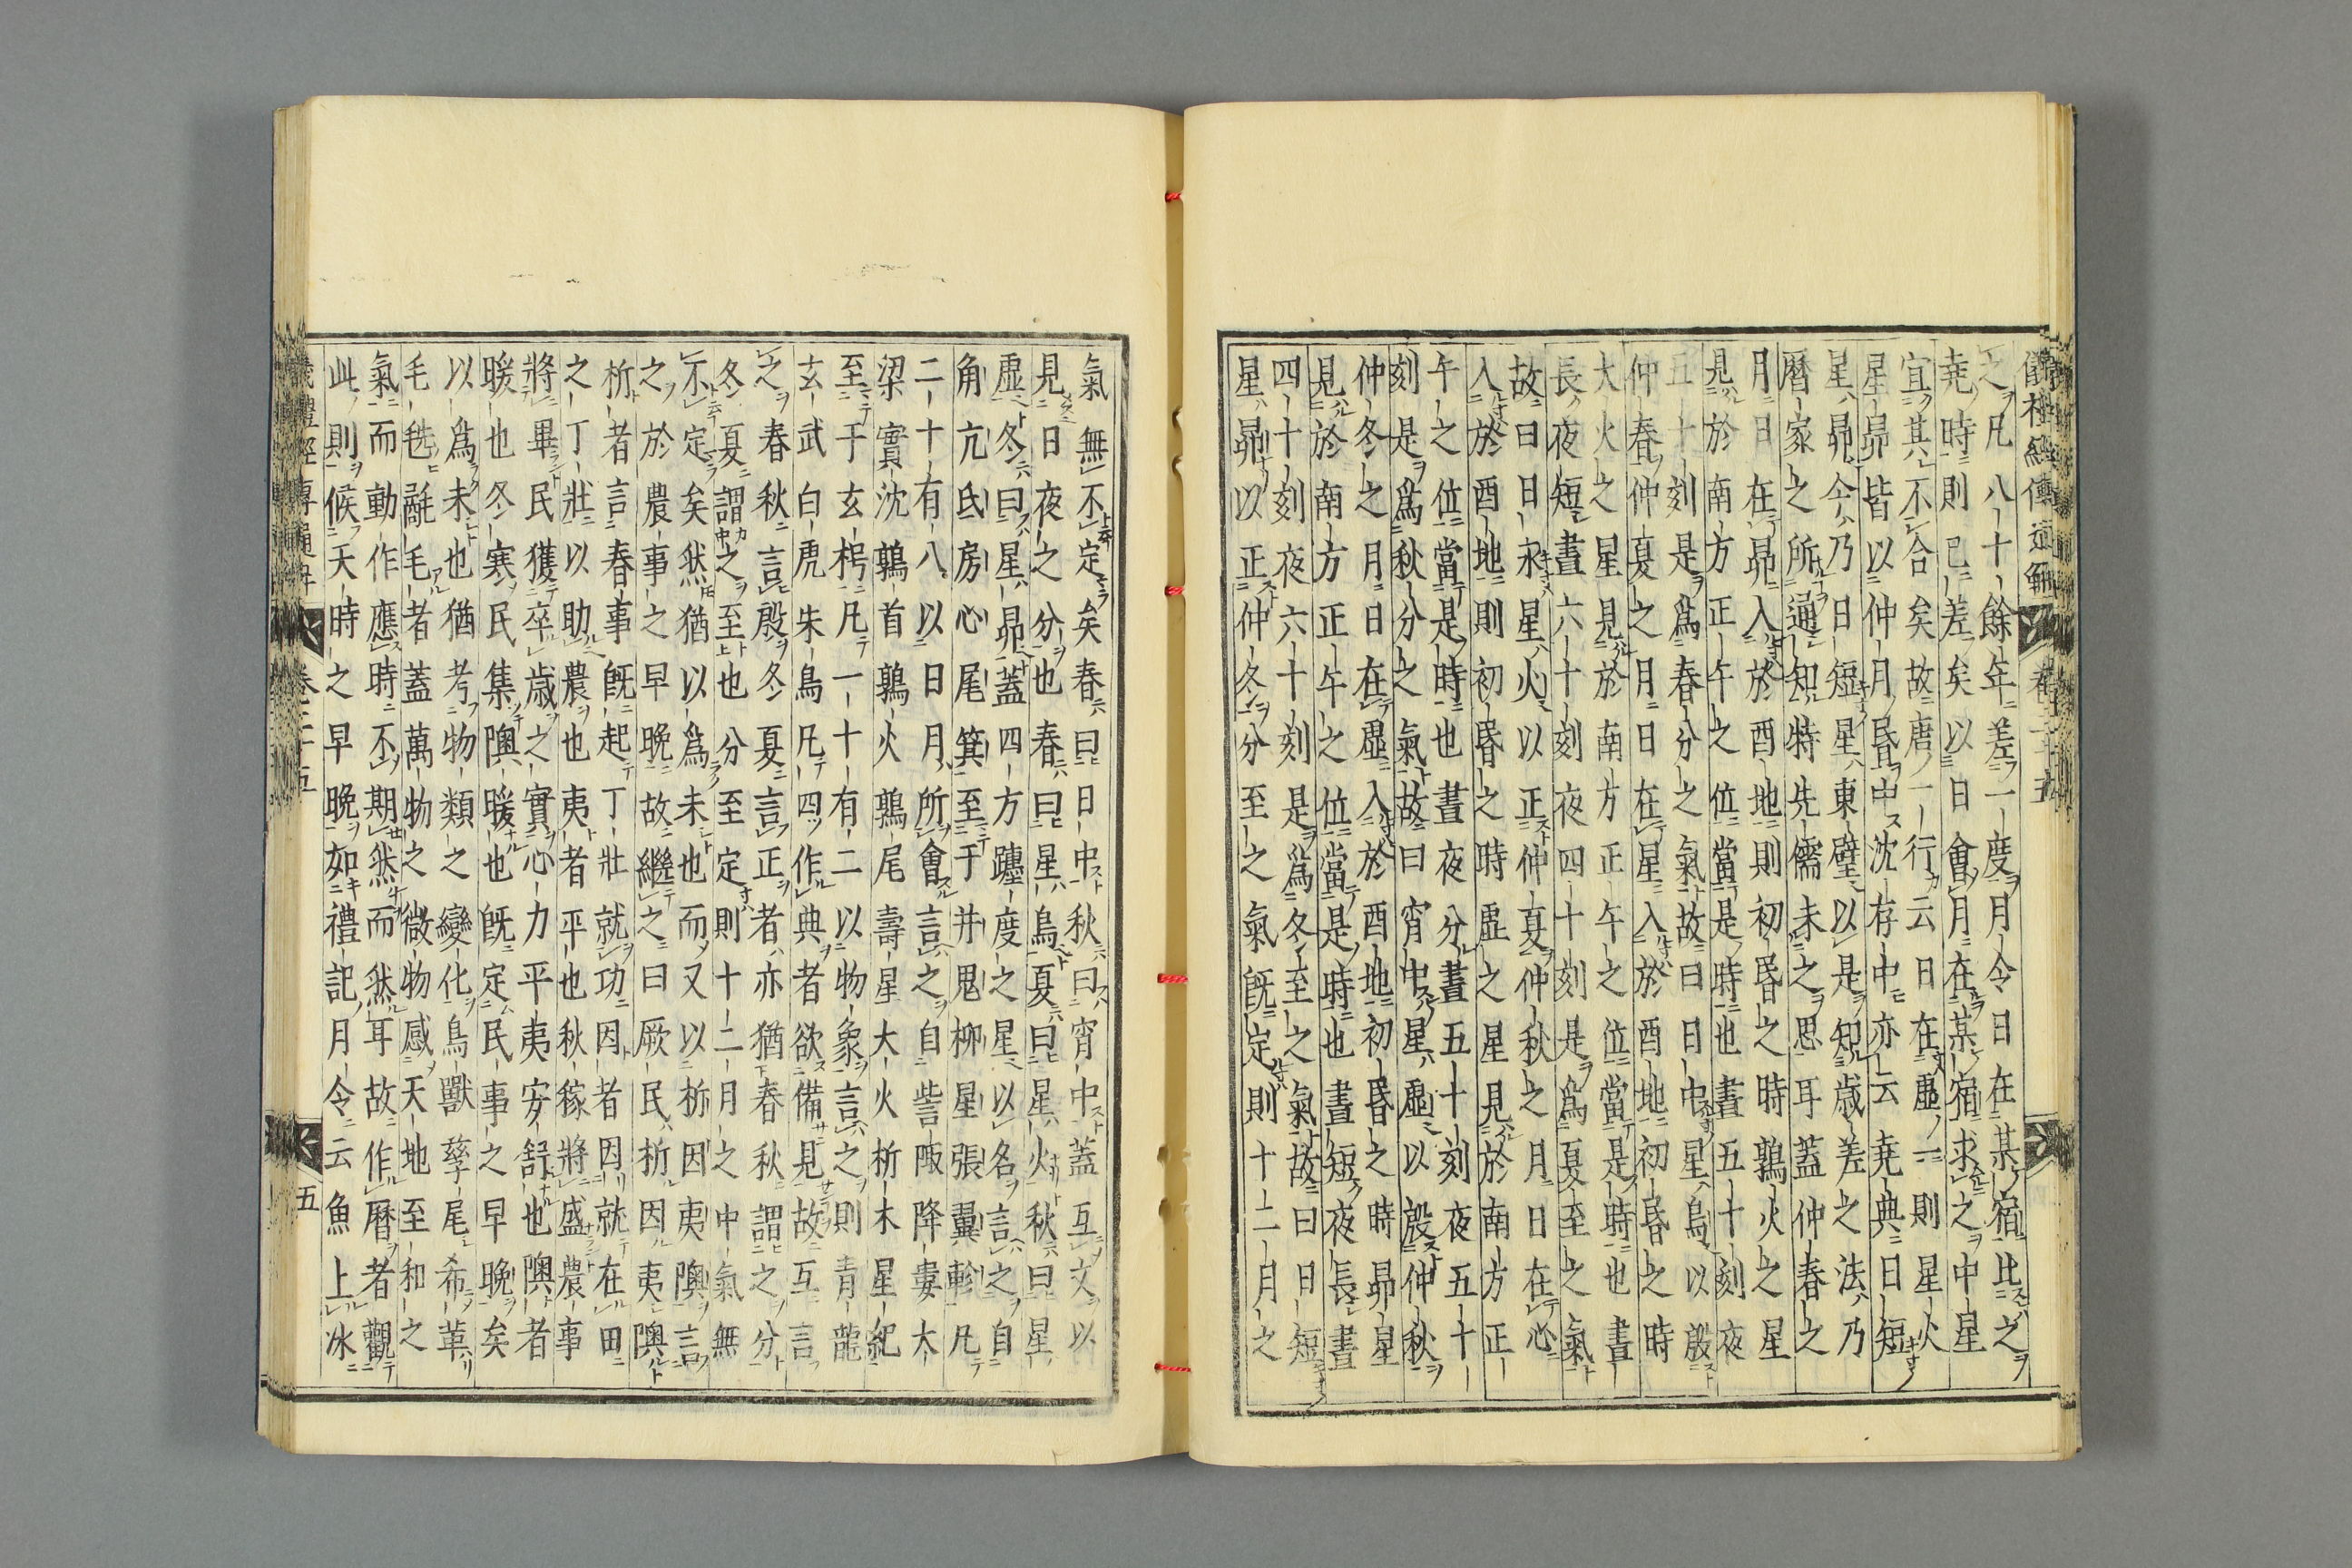 儀禮經傳通解 卷二十五
之凡八十餘年差一度月令日在某宿比之
堯時則已差矣以日會月在某宿求之中星
宜其不合矣故唐一行云日在虛一則星火
星昴皆以仲月昏中沈存中亦云堯典日短
星昴今乃日短星東壁以是知歳差之法乃
暦家之所通知特先儒未之思耳蓋仲春之
月日在昴入於酉地則初昏之時鶉火之星
見於南方正午之位當是時也晝五十刻夜
五十刻是為春分之氣故曰日中星鳥以殷
仲春仲夏之月日在星入於酉地初昏之時
大火之星見於南方正午之位當是時也晝
長夜短晝六十刻夜四十刻是為夏至之氣
故曰日永星火以正仲夏仲秋之月日在心
入於酉地則初昏之時虛之星見於南方正
午之位當是時也晝夜分晝五十刻夜五十
刻是為秋分之氣故曰宵中星虛以殷仲秋
仲冬之月日在虛入於酉地初昏之時昴星
見於南方正午之位當是時也晝短夜長晝
四十刻夜六十刻是為冬至之氣故曰日短
星昴以正仲冬分至之氣既定則十二月之
氣無不定矣春曰日中秋曰宵中蓋互文以
見日夜之分也春曰星鳥夏曰星火秋曰星
虛冬曰星昴蓋四方躔度之星以名言之自
角亢氐房心尾箕至于井鬼柳星張翼軫凡
二十有八以日月所會言之自訾陬降婁大
梁實沈鶉首鶉火鶉尾壽星大火析木星紀
至于玄枵凡一十有二以物象言之則青龍
玄武白虎朱鳥凡四作典者欲備見故互言
之春秋言殷冬夏言正者亦猶春秋謂之分
冬夏謂之至也分至定則十二月之中氣無
不定矣然猶以為未也而又以析因夷隩言
之於農事之早晩故繼之曰厥民析因夷隩
析者言春事既起丁壯就功因者因就在田
之丁壯以助農也夷者平也秋稼將盛農事
將畢民獲卒歳之實心力平夷安舒也隩者
暖也冬寒民集隩暖也既定民事之早晩矣
以為未也猶考物類之變化鳥獸孳尾希革
毛毨氄毛者蓋萬物之微物感天地至和之
氣而動作應時不期然而然耳故作暦者觀
此則候天時之早晩如禮記月令云魚上冰
儀禮經傳通解 卷二十五 五